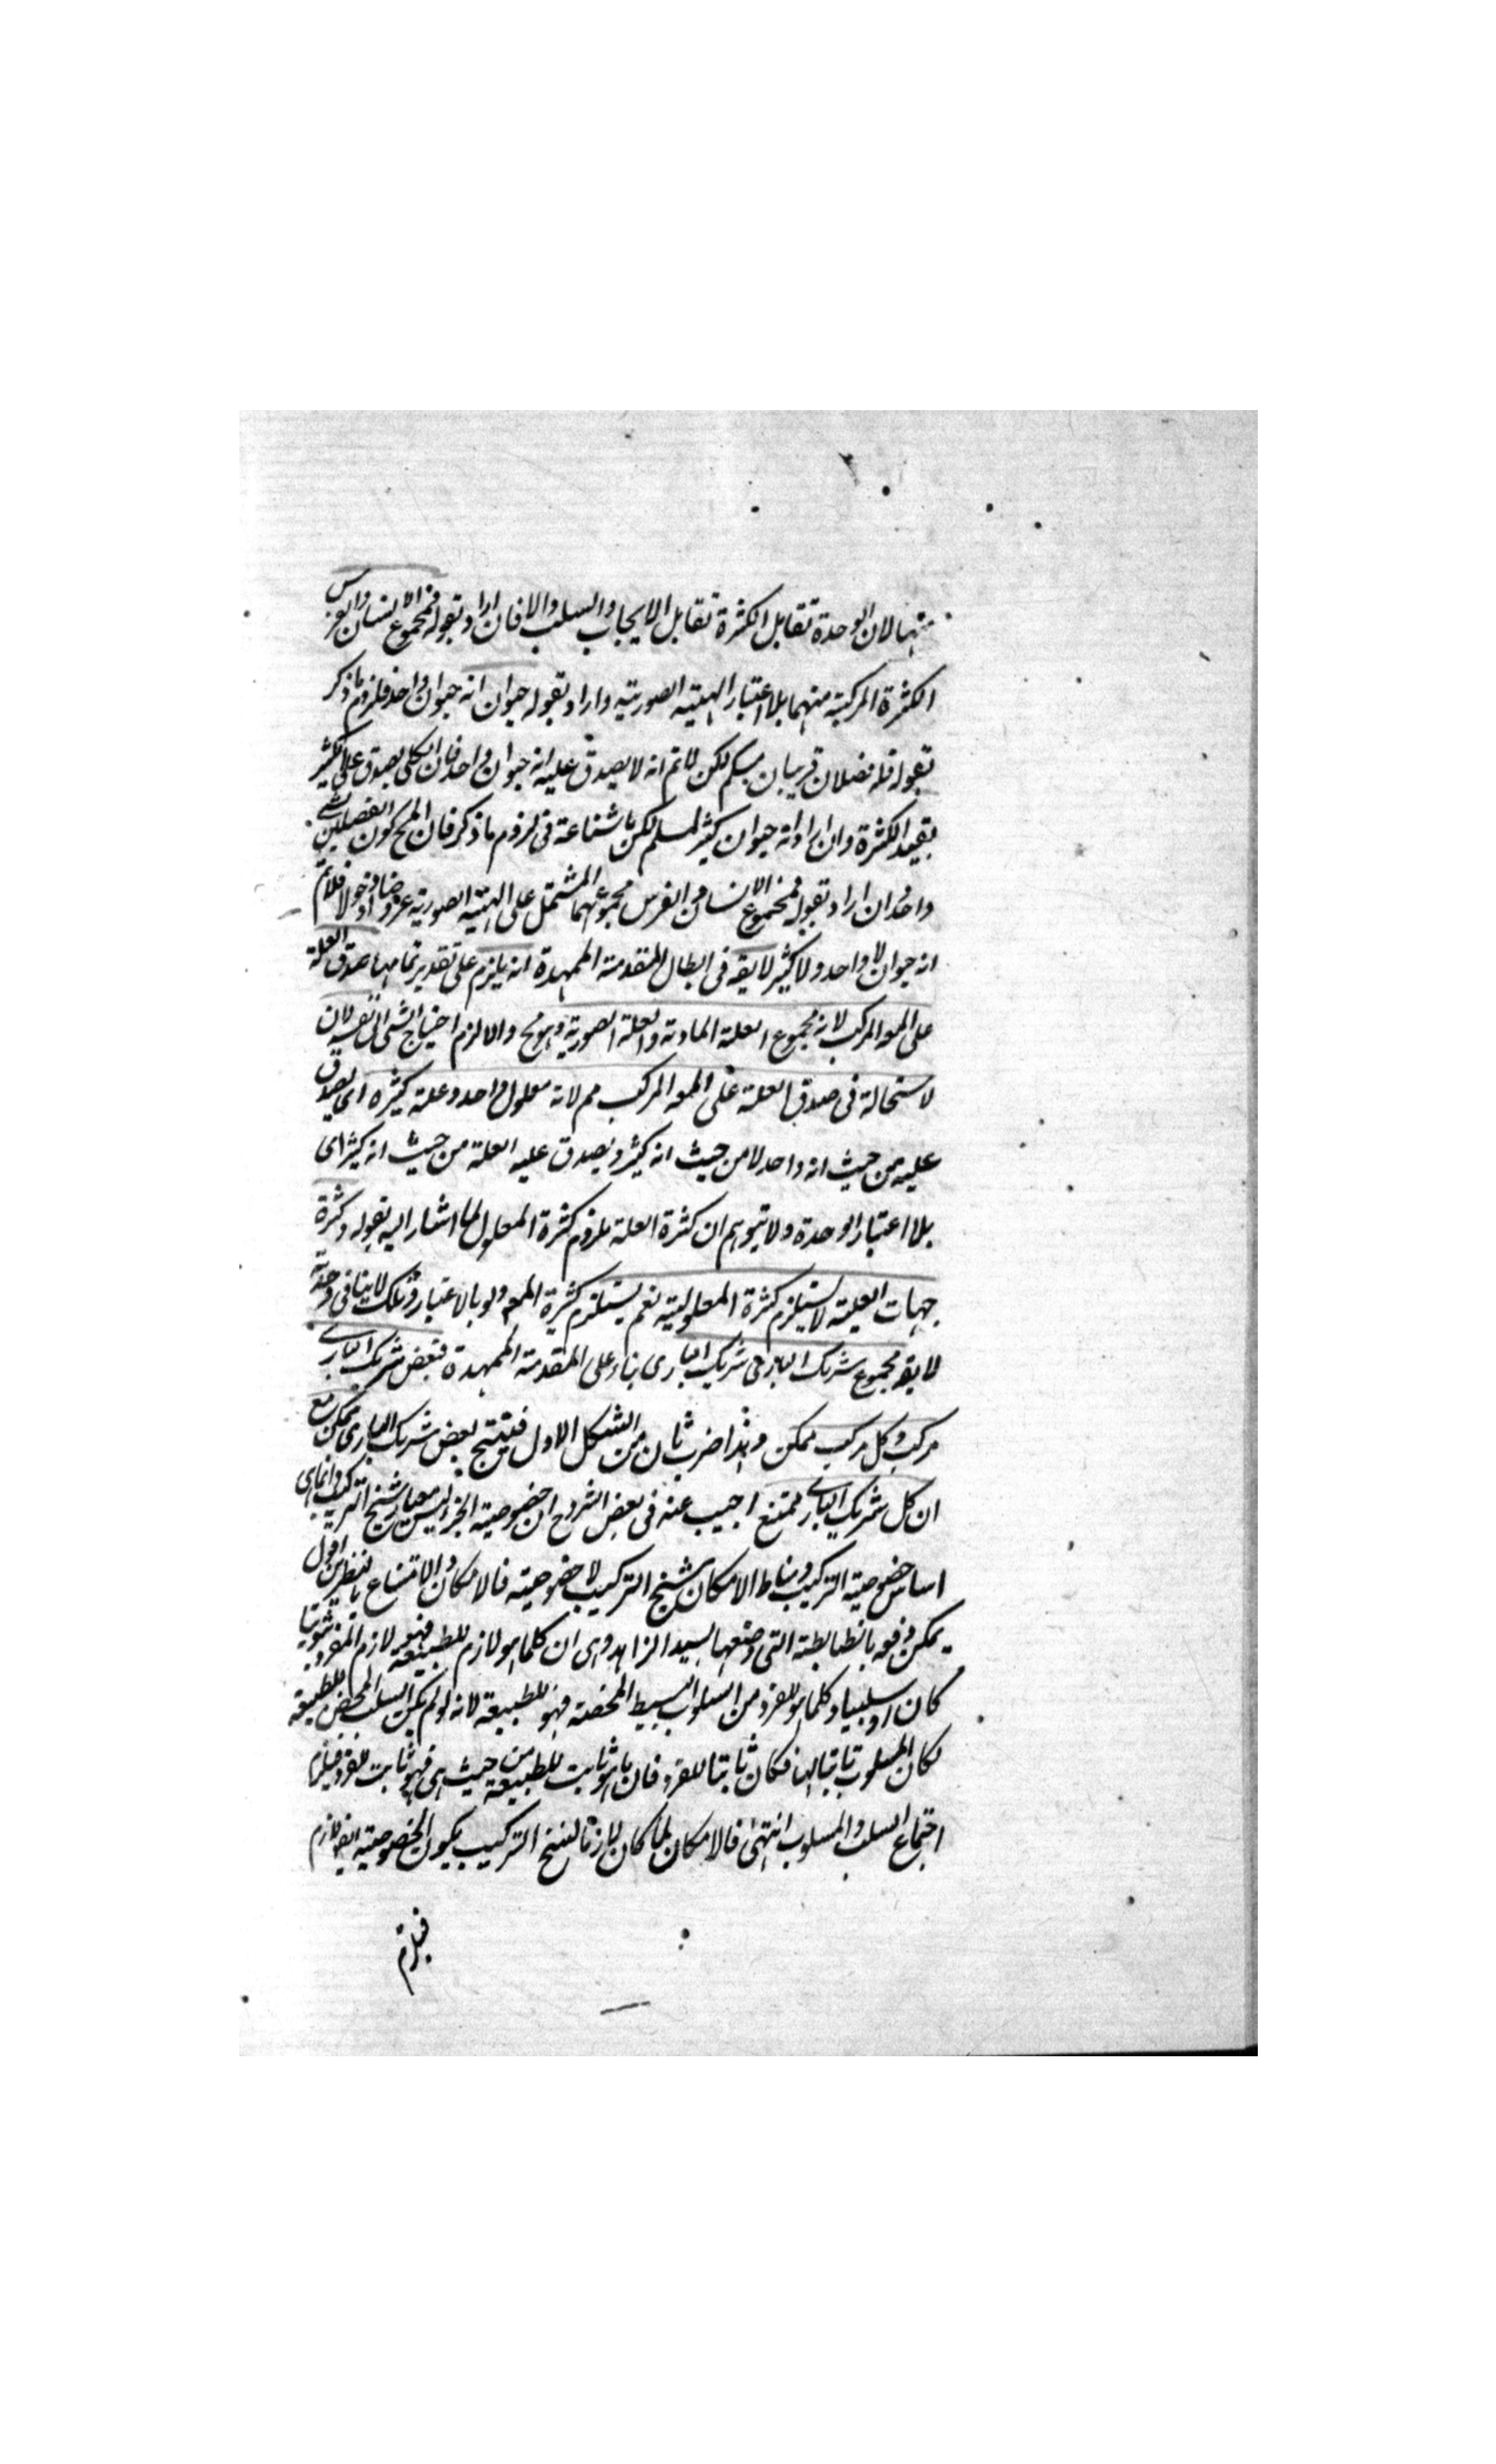 منها لان الوحدة تقابل الكثرة تقابل الايجاب والسلب والا فان اراد بقوله فمجموع الانسان والفرس
الكثرة المركبة منهما بلا اعتبار الهيئة الصورية واراد بقوله حيوان انه حيوان واحد فلزوم ما ذكر
بقوله فله فصلان قريبان مسلم لكن لا تم انه لا يصدق عليه انه حيوان واحد فان الكلي يصدق على الكثير
بقيد الكثرة وان اراد انه حيوان كثير لمسلم لكن ما شناعة في لزوم ما ذكر فان المح كون الفصلين لشئ
واحد وان اراد بقوله فمجموع الانسان والفرس مجموعهما المشتمل على الهيئة الصورية عروضا او دخولا فلا تم
انه حيوان لا واحد ولا كثير لا يقه في ابطال المقدمة الممهدة انه يلزم على تقدير تمامها صدق العلة
على المعه المركب لانه مجموع العلة المادية والعلة الصورية وهو مح والا لزم احتياج الشئ الى نفسه لان
لاستحالة في صدق العلة على المعه المركب مم لانه معلول واحد وعلة كثيرة اى يصدق
عليه من حيث انه واحد لا من حيث انه كثير ويصدق عليه العلة من حيث انه كثير اى
بلا اعتبار الوحدة ولا يتوهم ان كثرة العلة يلزم كثرة المعلول لما اشار اليه بقوله وكثرة
جهات العلية لا يستلزم كثرة المعلولية نعم يستلزم كثرة المعه ولو بالاعتبار وتلك لا ينافي وحدته
لا يقه مجموع شريك البارى شريك البارى بناء على المقدمة الممهدة فبعض شريك البارى
مركب وكل مركب ممكن وهذا ضرب ثان من الشكل الاول فينتج بعض شريك البارى ممكن مع
ان كل شريك البارى ممتنع اجيب عنه في بعض الشروح ان خصوصية الجزء ليس معيار سنخ التركيب وانما هى
اساس خصوصية التركيب ومناط الامكان سنخ التركيب لا خصوصيته فالامكان والامتناع بالنظرين اقول
يمكن دفعه بالضابطة التى وضعها السيد الزاهد وهى ان كلما هو لازم للطبيعة فهو لازم للفرد ثبوتيا
كان او سلبيا وكلما هو للفرد من السلوب البسيط المحضة فهو للطبيعة لانه لو لم يكن السلب المحض للطبيعة
لكان المسلوب ثابتا لها فكان ثابتا للفرد فان ما هو ثابت للطبيعة من حيث هى فهو ثابت للفرد فيلزم
اجتماع السلب والمسلوب انتهى فالامكان لما كان لازما لسنخ التركيب يكون الخصوصيته ايضا لازم
فيلزم